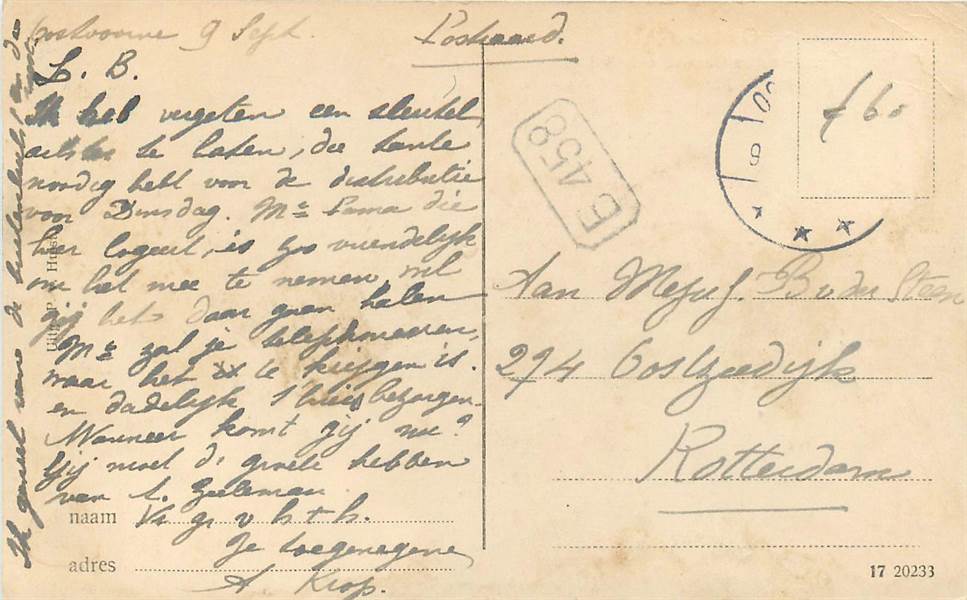 Oostvoorne 9 Sept.
Postkaard.
L. B.
Ik heb vergeten een sleutel
te laten, die tante
noodig hebt voor de distributie
voor Dinsdag. Mr Pama die
hier logeert, is zoo vriendelijk
om het mee te nemen, wil
gij het daar gaan halen
Mr zal je telephoneeren,
waar het te krijgen is.
en dadelijk bezorgen.
Wanneer komt gij me?
Gij moet d. groete hebben
van A. Zeeleman
naam Vr gr v h t h.
Je toegenegene
adres
A. Krop.
Ik geneet van de
Uitg. P. Hoes
E 458
f 60
9
Aan Mejuf. B v der Steen
294 Oostzeedijk
Rotterdam
17 20233